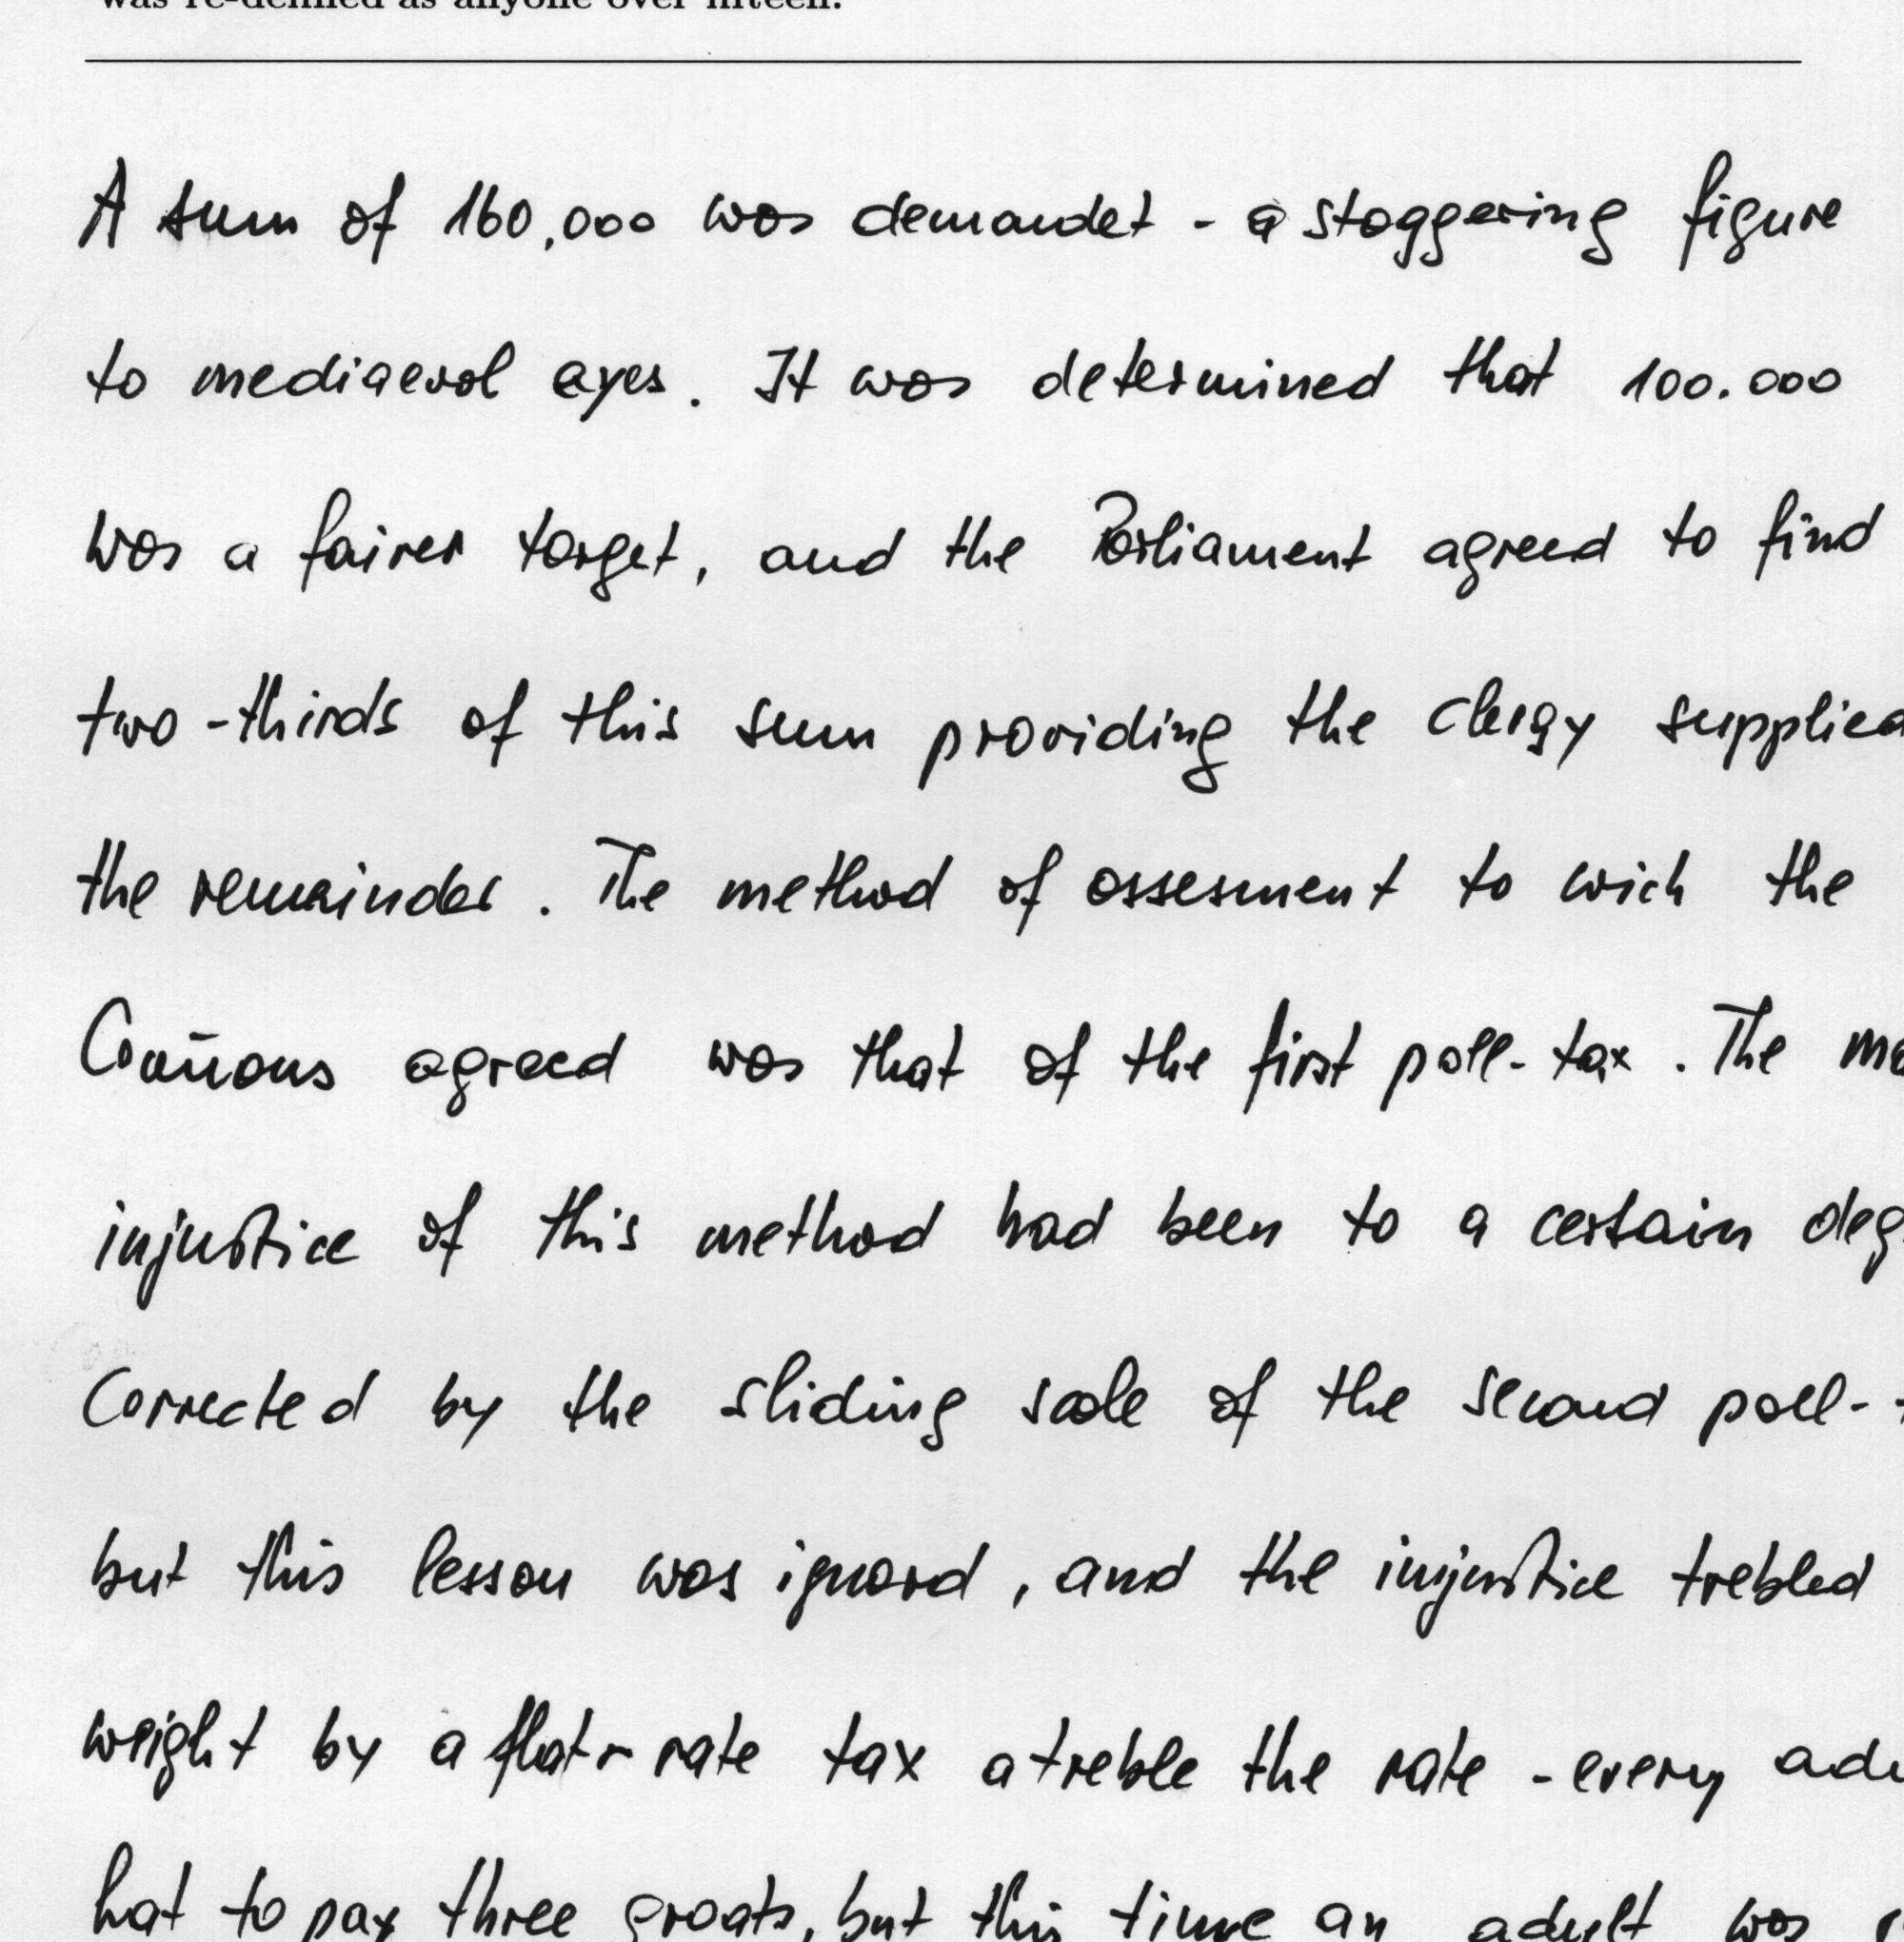 was re-defined as anyone over fifteen.
A sum of 160,000 was demandet - a staggering figure
to mediaeval eyes. It was determined that 100.000
was a fairer target, and the Parliament agreed to find
two-thirds of this sum providing the clergy supplied
the remainder. The method of assesment to wich the
Com̄ons agreed was that of the first poll-tax. The
injustice of this method had been to a certain deg
corrected by the sliding scale of the second poll-
but this lesson was ignord, and the injustice trebled
weight by a flat-rate tax a treble the rate - every adu
hat to pay three groats, but this time an adult was